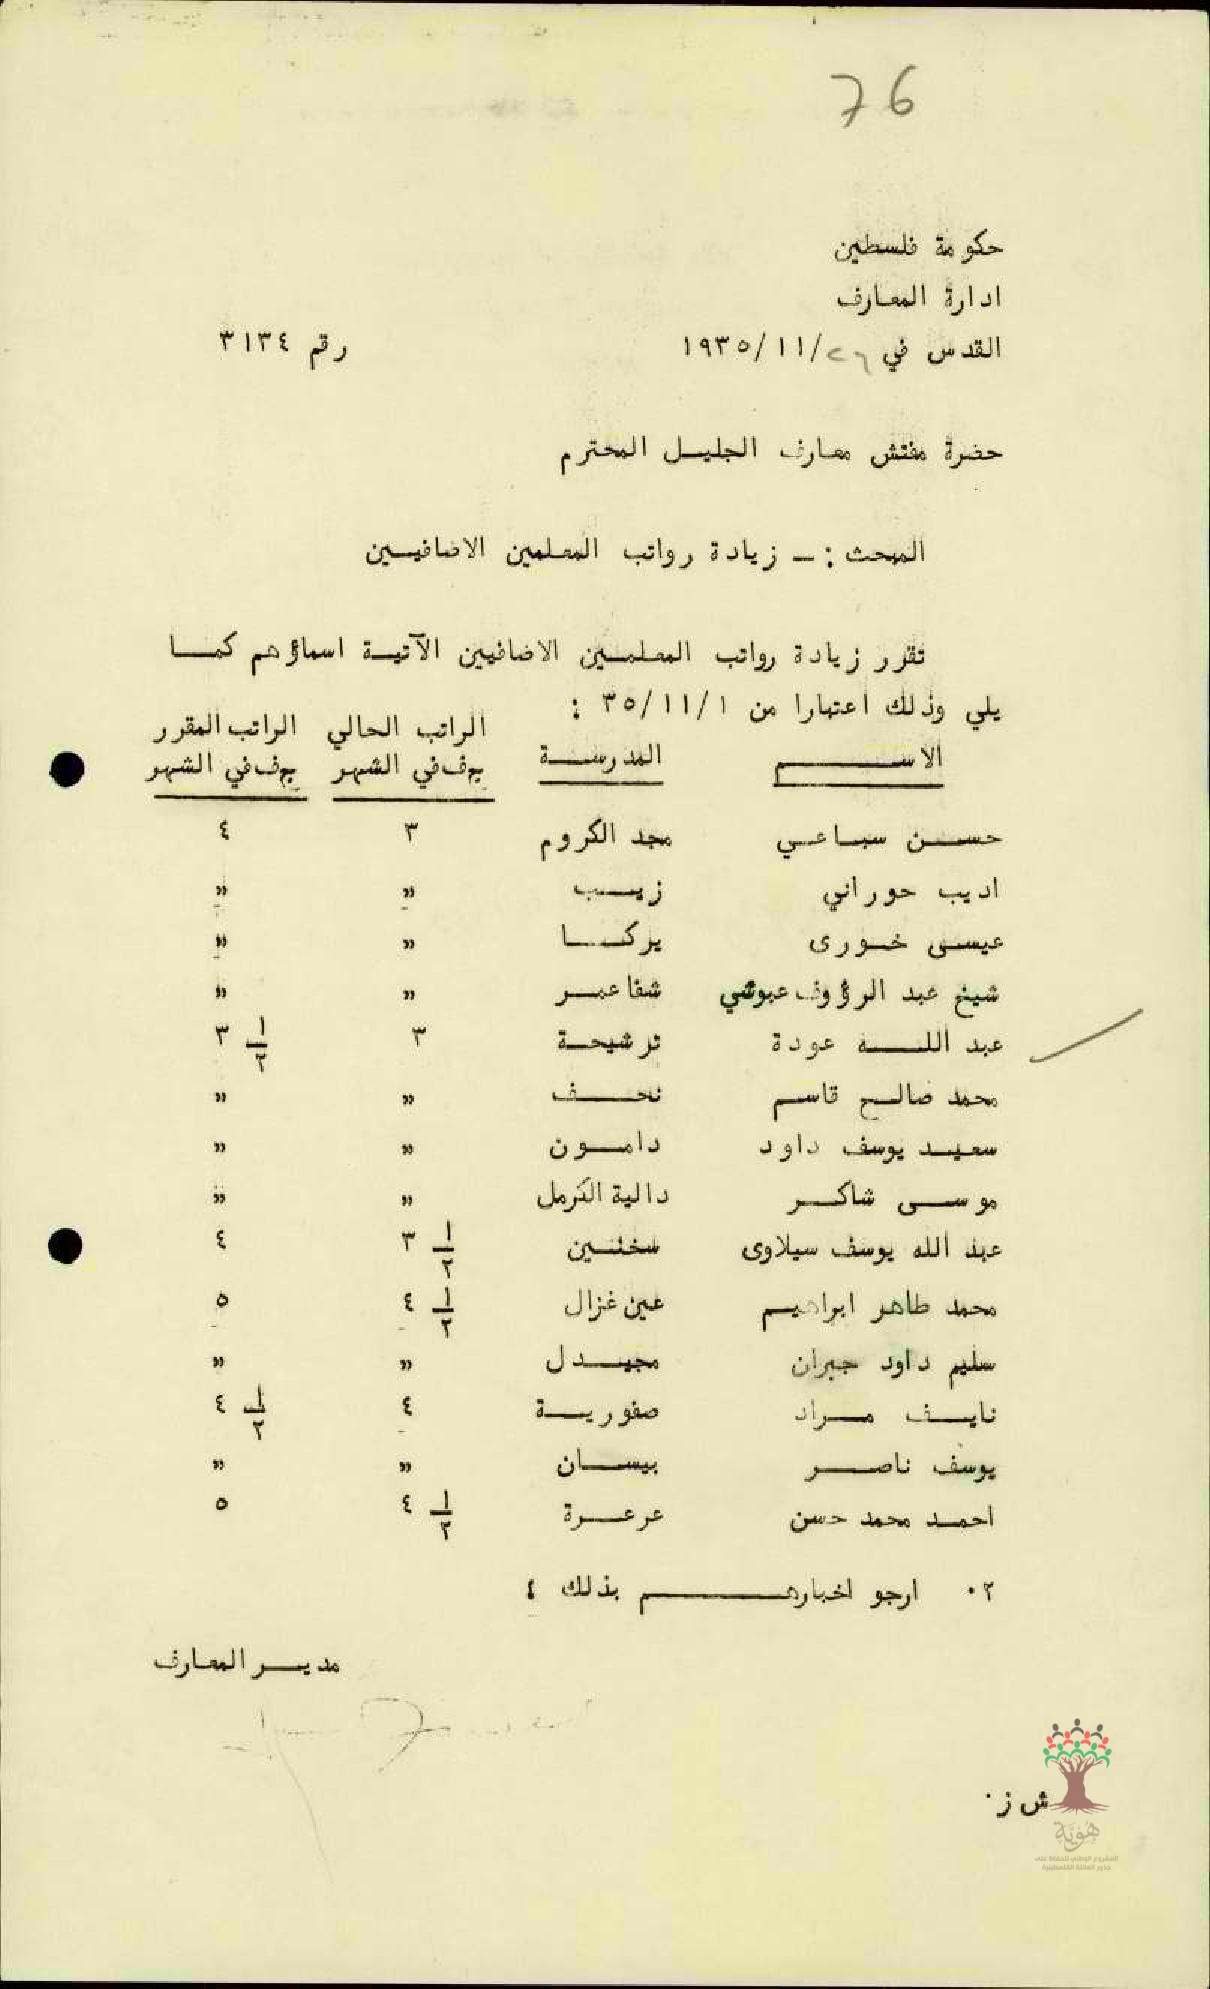 76
حكومة فلسطين
ادارة المعارف
القدس في ٢٦/١١/١٩٣٥ رقم ٣١٣٤
حضرة مفتش معارف الجليل المحترم
المبحث :ـ زيادة رواتب المعلمين الاضافيين
تقرر زيادة رواتب المعلمين الاضافيين الآتية اسماؤهم كما
يلي وذلك اعتبارا من ٣٥/١١/١ :
الاسم المدرسة الراتب الحالي ج٠ف في الشهر الراتب المقرر ج٠ف في الشهر
حسن سباعي مجد الكروم ٣ ٤
اديب حوراني زيب " "
عيسى خورى يركا " "
شيخ عبد الرؤوف عبوشي شفا عمر " "
عبد الله عودة ترشيحة ٣ ٣ ١/٢
محمد صالح قاسم نحف " "
سعيد يوسف داود دامون " "
موسى شاكر دالية الكرمل " "
عبد الله يوسف سيلاوى سخنين ٣ ١/٢ ٤
محمد طاهر ابراهيم عين غزال ٤ ١/٢ ٥
سليم داود جبران مجيدل " "
نايف مراد صفورية ٤ ٤ ١/٢
يوسف ناصر بيسان " "
احمد محمد حسن عرعرة ٤ ١/٢ ٥
٢٠ ارجو اخبارهم بذلك ؛
مدير المعارف
ش ز٠
هُويّة
المشروع الوطني للحفاظ على
جذور العائلة الفلسطينية